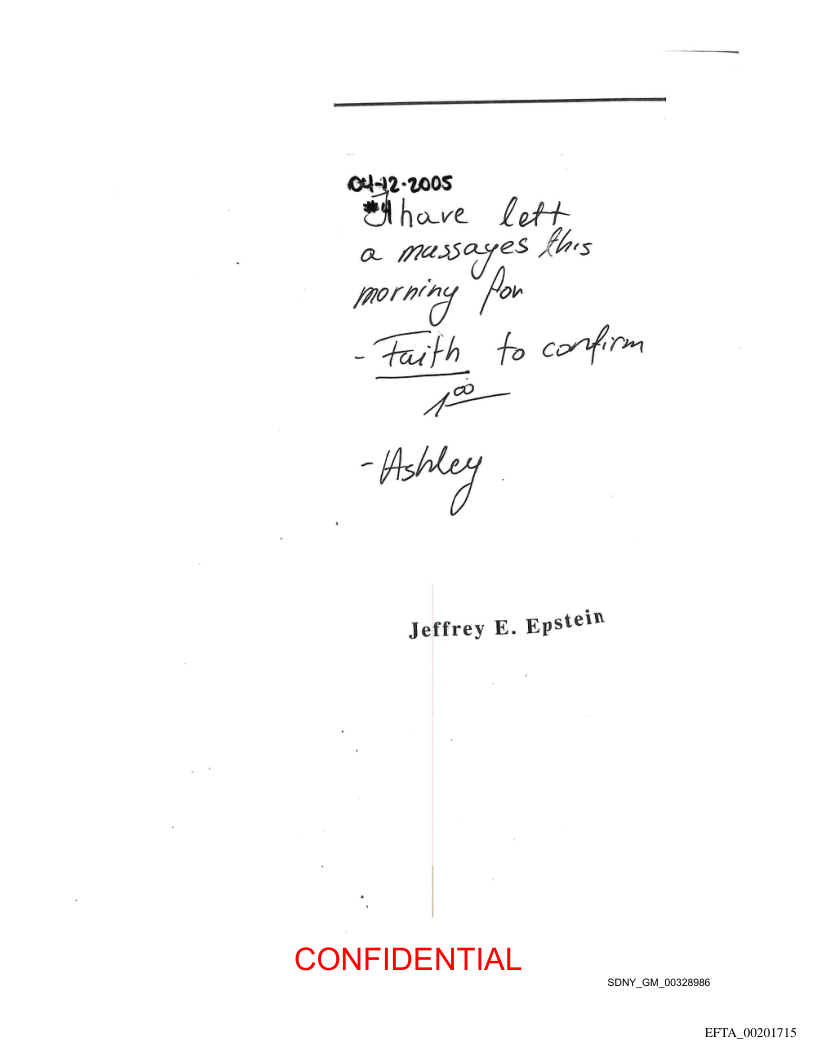 04-12-2005
#4 I have left
a massages this
morning for
- Faith to confirm
1⁰⁰
- Ashley
Jeffrey E. Epstein
CONFIDENTIAL
SDNY_GM_00328986
EFTA_00201715